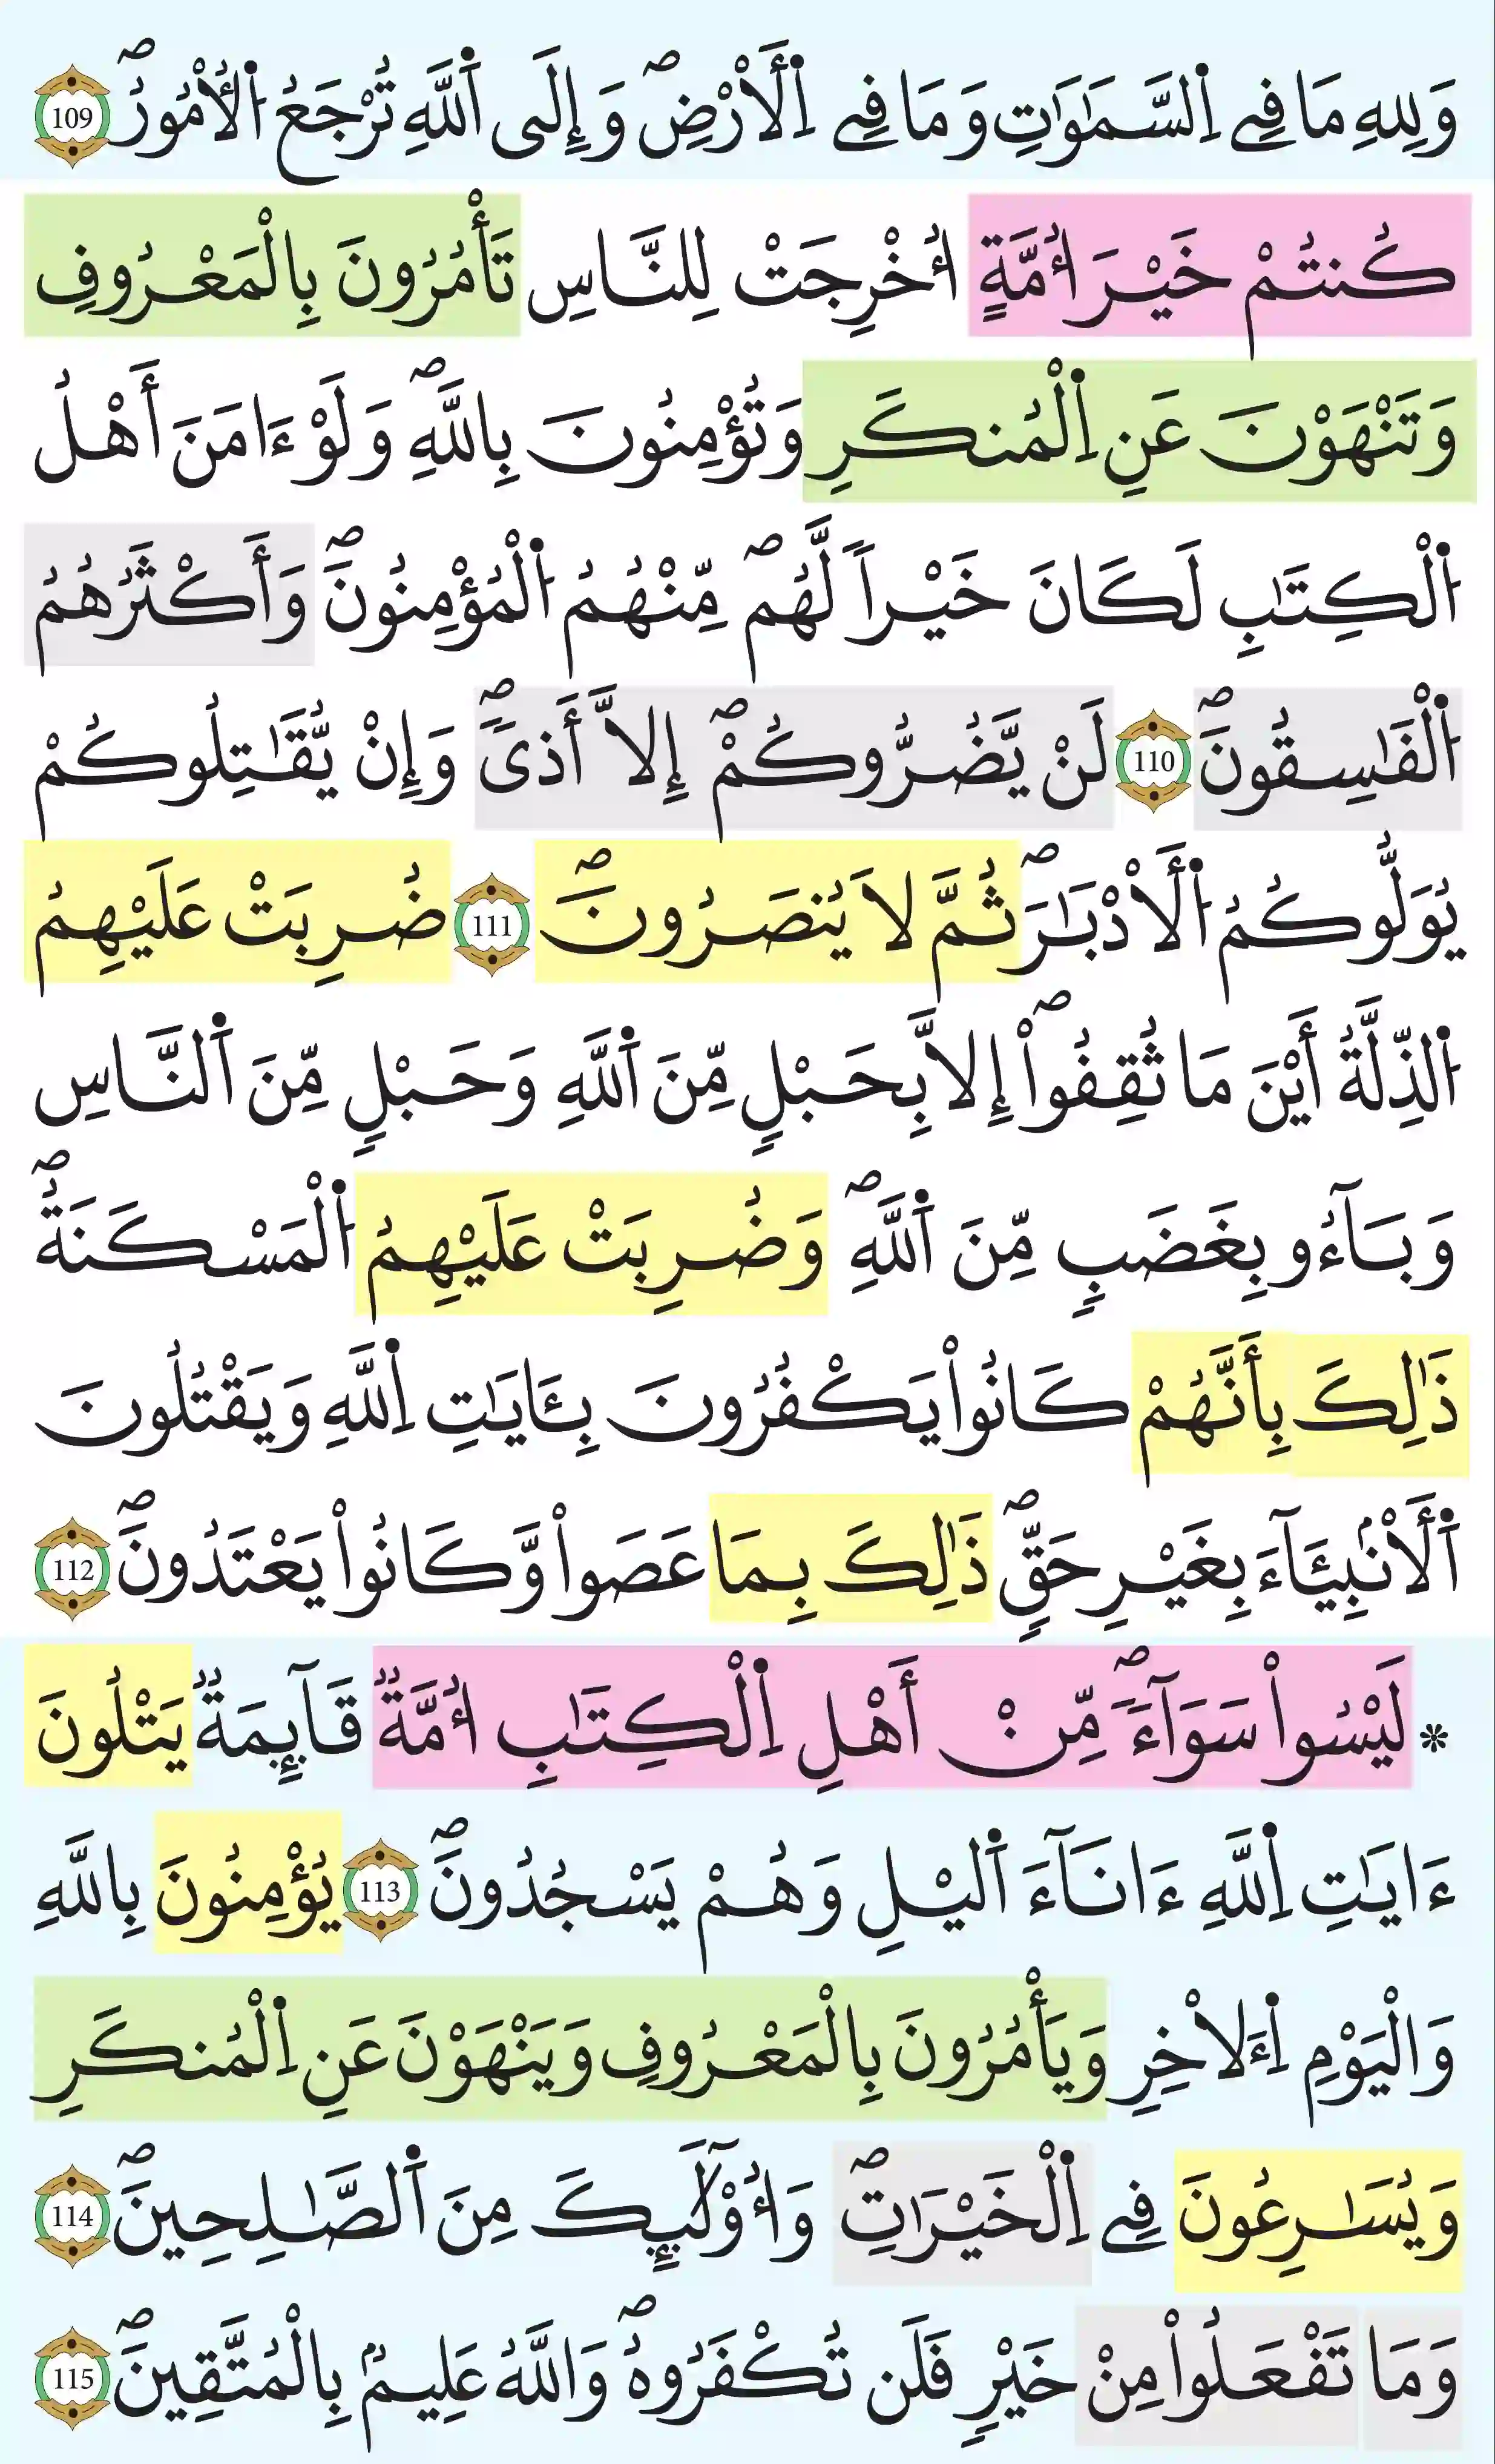 وَلِلهِ مَا فِے اِ۬لسَّمَٰوَٰتِ وَمَا فِے اِ۬لْأَرْضِۖ وَإِلَى اَ۬للَّهِ تُرْجَعُ اُ۬لُامُورُۖ 109
كُنتُمْ خَيْرَ أُمَّةٍ ا۟خْرِجَتْ لِلنَّاسِ تَأْمُرُونَ بِالْمَعْرُوفِ
وَتَنْهَوْنَ عَنِ اِ۬لْمُنكَرِ وَتُؤْمِنُونَ بِاللَّهِۖ وَلَوْ ءَامَنَ أَهْلُ
اُ۬لْكِتَٰبِ لَكَانَ خَيْراٗ لَّهُمۖ مِّنْهُمُ اُ۬لْمُؤْمِنُونَۖ وَأَكْثَرُهُمُ
اُ۬لْفَٰسِقُونَۖ 110 لَنْ يَّضُرُّوكُمْۖ إِلَّا أَذىٗۖ وَإِنْ يُّقَٰتِلُوكُمْ
يُوَلُّوكُمُ اُ۬لَادْبَٰرَۖ ثُمَّ لَا يُنصَرُونَۖ 111 ضُرِبَتْ عَلَيْهِمُ
اُ۬لذِّلَّةُ أَيْنَ مَا ثُقِفُوٓاْۖ إِلَّا بِحَبْلٖ مِّنَ اَ۬للَّهِ وَحَبْلٖ مِّنَ اَ۬لنَّاسِ
وَبَآءُو بِغَضَبٖ مِّنَ اَ۬للَّهِۖ وَضُرِبَتْ عَلَيْهِمُ اُ۬لْمَسْكَنَةُۖ
ذَٰلِكَ بِأَنَّهُمْ كَانُواْ يَكْفُرُونَ بِـَٔايَٰتِ اِ۬للَّهِ وَيَقْتُلُونَ
اَ۬لَانۢبِيَٓاءَ بِغَيْرِ حَقّٖۖ ذَٰلِكَ بِمَا عَصَواْ وَّكَانُواْ يَعْتَدُونَۖ 112
* لَيْسُواْ سَوَآءَۖ مِّنْ أَهْلِ اِ۬لْكِتَٰبِ أُمَّةٞ قَآئِمَةٞ يَتْلُونَ
ءَايَٰتِ اِ۬للَّهِ ءَانَآءَ اَ۬ليْلِ وَهُمْ يَسْجُدُونَۖ 113 يُؤْمِنُونَ بِاللَّهِ
وَالْيَوْمِ اِ۬لَاخِرِ وَيَأْمُرُونَ بِالْمَعْرُوفِ وَيَنْهَوْنَ عَنِ اِ۬لْمُنكَرِ
وَيُسَٰرِعُونَ فِے اِ۬لْخَيْرَٰتِۖ وَأُوْلَٰٓئِكَ مِنَ اَ۬لصَّٰلِحِينَۖ 114
وَمَا تَفْعَلُواْ مِنْ خَيْرٖ فَلَن تُكْفَرُوهُۖ وَاللَّهُ عَلِيمُۢ بِالْمُتَّقِينَۖ 115